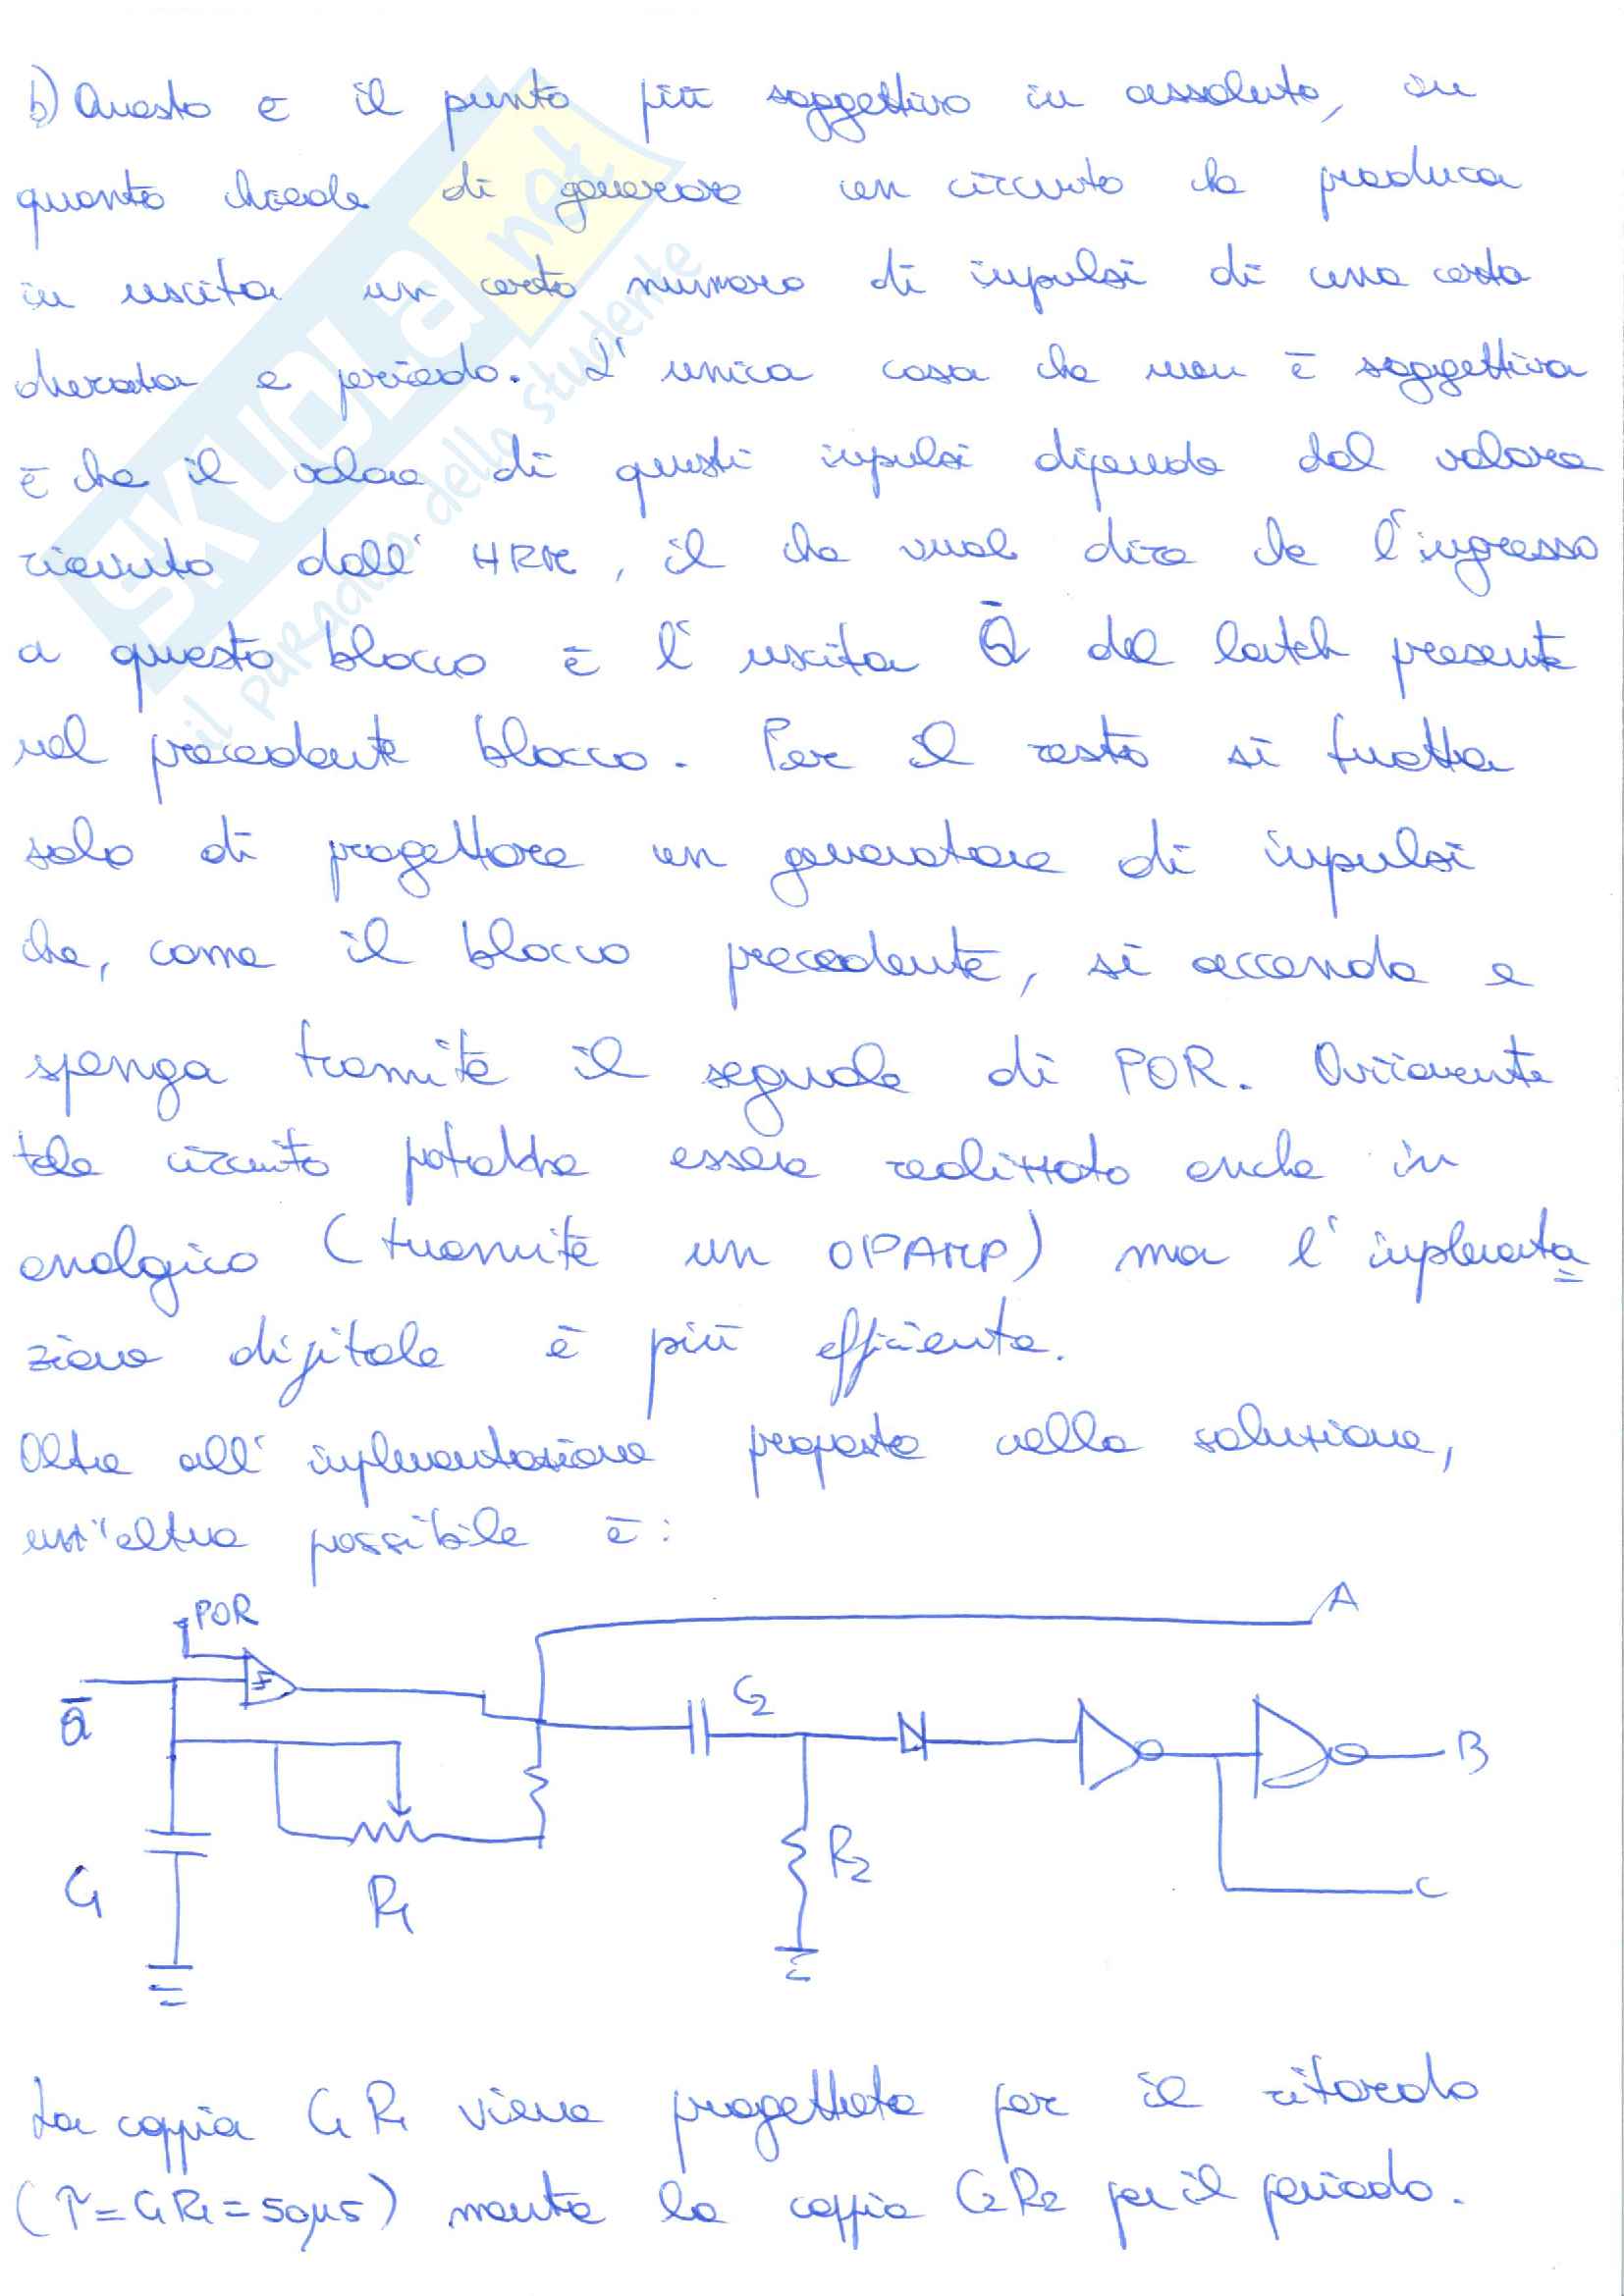 b) Questo è il punto più soggettivo in assoluto, in
quanto chiede di generare un circuito che produca
in uscita un certo numero di impulsi di una certa
durata e periodo. L'unica cosa che non è soggettiva
è che il valore di questi impulsi dipende dal valore
ricevuto dall' HRM, il che vuol dire che l'ingresso
a questo blocco è l'uscita Q̄ del latch presente
nel precedente blocco. Per il resto si tratta
solo di progettare un generatore di impulsi
che, come il blocco precedente, si accenda e
spenga tramite il segnale di POR. Ovviamente
tale circuito potrebbe essere realizzato anche in
analogico (tramite un OPAMP) ma l'implementa=
zione digitale è più efficiente.
Oltre all'implementazione proposta nella soluzione,
un'altra possibile è:
POR
A
Q̄
C2
B
R2
C1
R1
C
La coppia C1 R1 viene progettata per il ritardo
(τ = C1R1 = 50μs) mentre la coppia C2R2 per il periodo.
SKUOLA.net
il paradiso dello studente